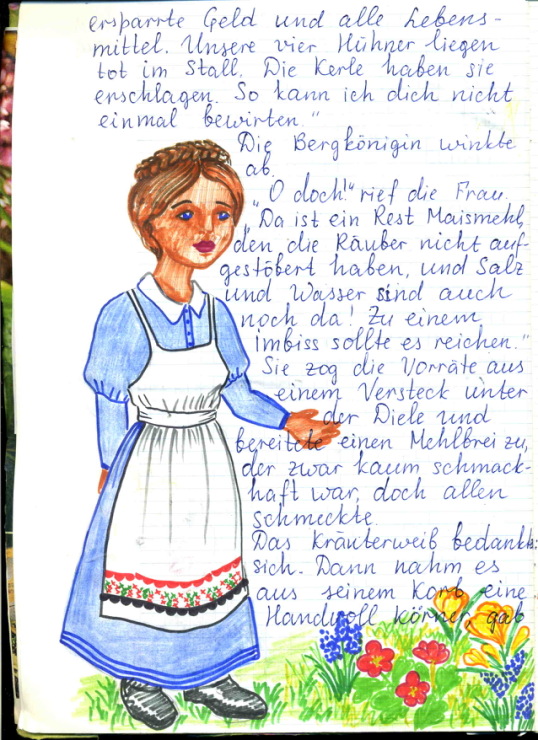 ersparrte Geld und alle Lebens-
mittel. Unsere vier Hühner liegen
tot im Stall. Die Kerle haben sie
erschlagen. So kann ich dich nicht
einmal bewirten."
Die Bergkönigin winkte
ab.
„O doch!" rief die Frau.
„Da ist ein Rest Maismehl,
den die Räuber nicht auf-
gestöbert haben, und Salz
und Wasser sind auch
noch da! Zu einem
Imbiss sollte es reichen."
Sie zog die Vorräte aus
einem Versteck unter
der Diele und
bereitete einen Mehlbrei zu,
der zwar kaum schmack-
haft war, doch allen
schmeckte.
Das Kräuterweib bedankte
sich. Dann nahm es
aus seinem Korb eine
Handvoll Körner, gab